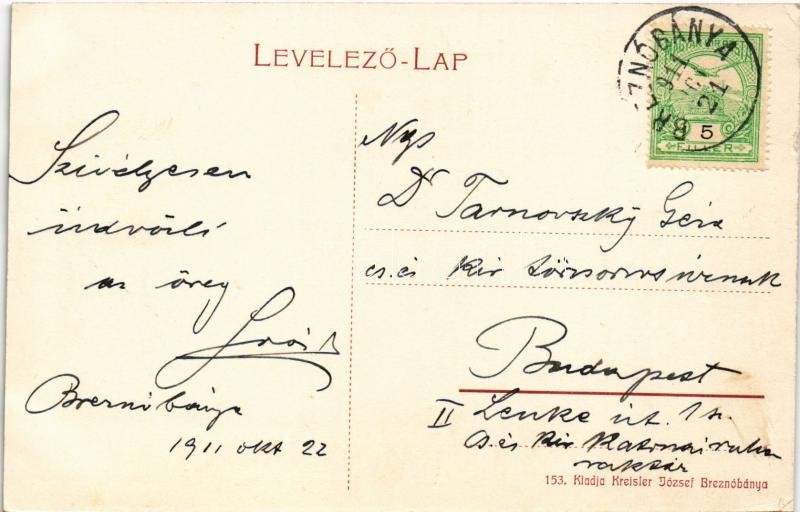 LEVELEZŐ-LAP
BREZNÓBÁNYA
911
21
5
FILLÉR
Szivélyesen
üdvözli
az öreg
Breznóbánya
1911 okt 22
Ngs
Dr Tarnovszky Géza
cs. és kir törzsorvos úrnak
Budapest
II Lenke út. 1 sz.
cs és kir Katonai ruha
raktár
153. Kiadja Kreisler József Breznóbánya